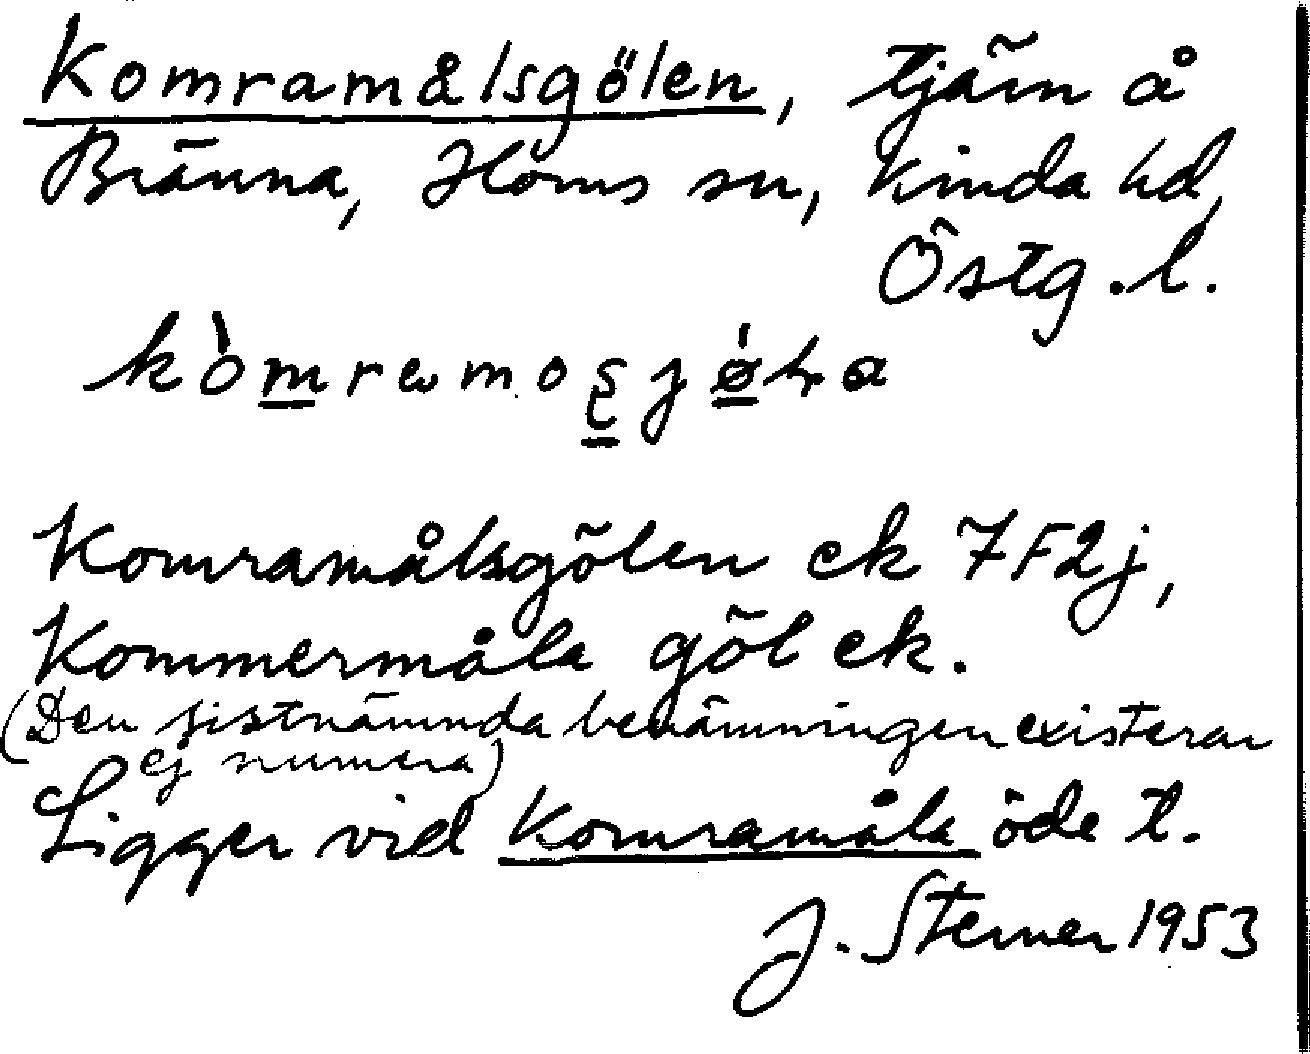 Komramålsgölen, tjärn å
Bränna, Horns sn, Kinda hd,
Östg.l.
Komramålsgölen ek 7F2j,
Kommermåla göl ek.
(Den sistnämnda benämningen existerar
ej numera)
Ligger vid Komramåla öde t.
J. Sterner 1953